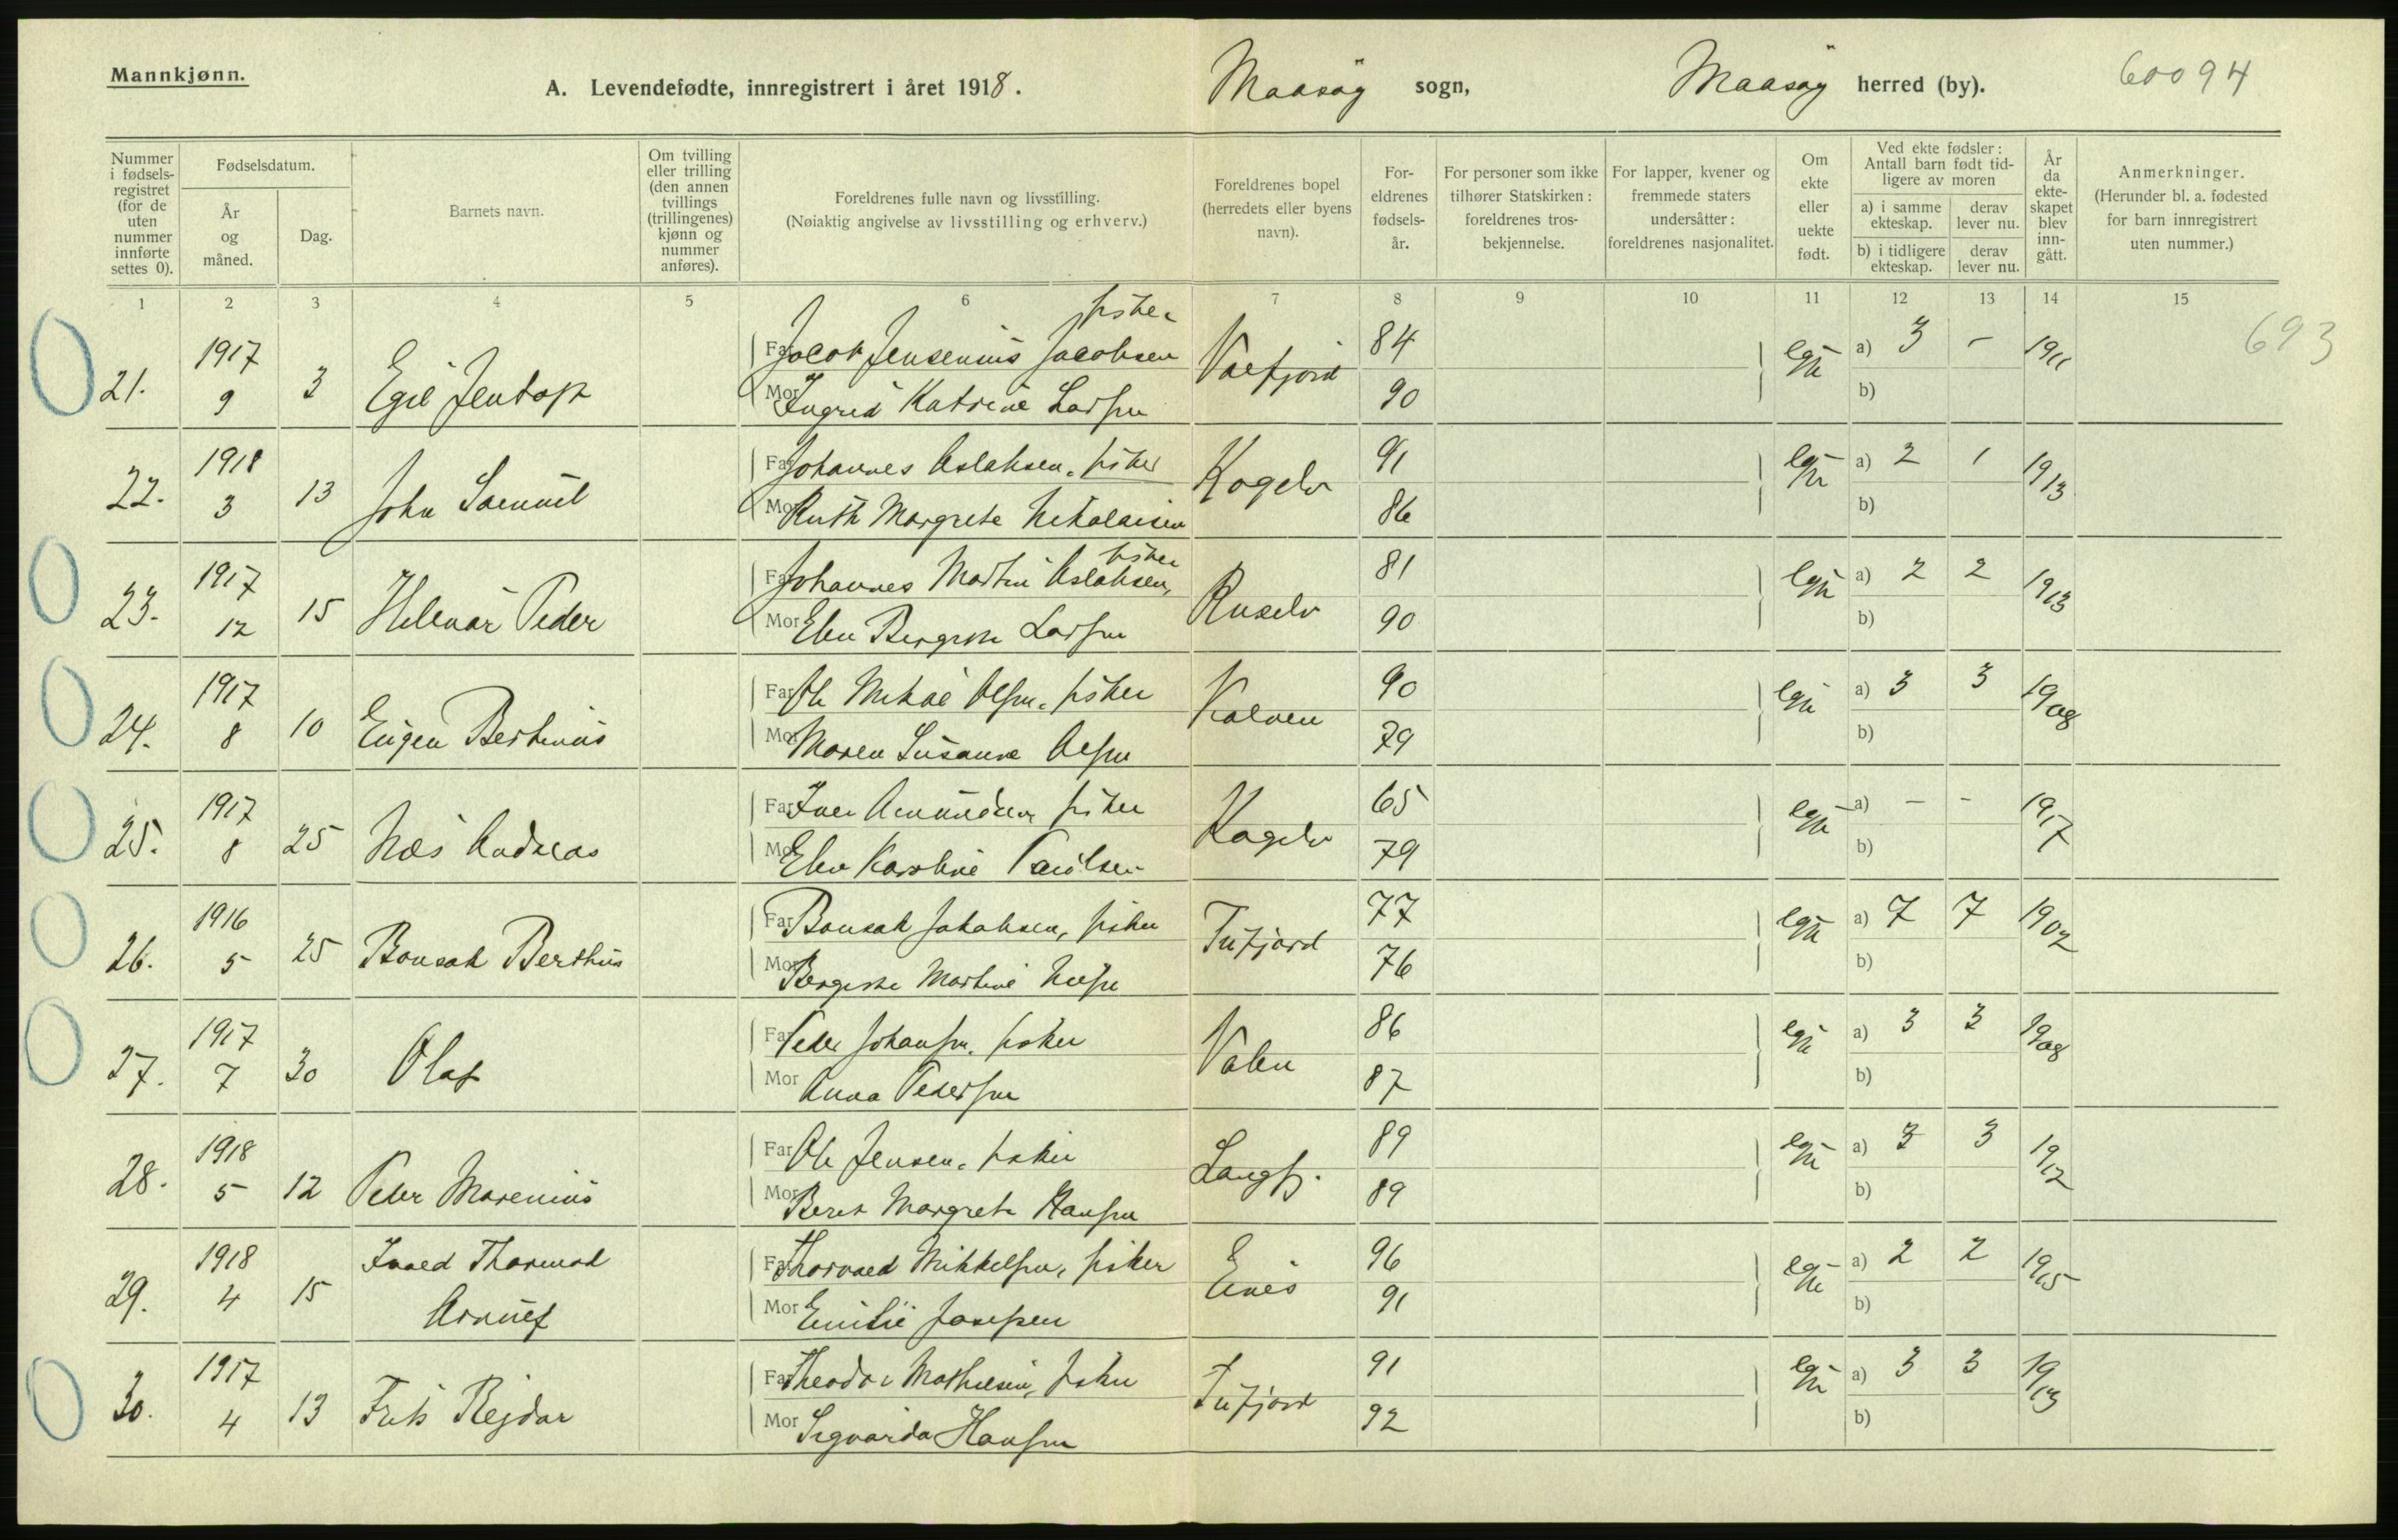 Mannkjønn.
A. Levendefødte, innregistrert i året 1918.
Maasøy sogn, Maasøy herred (by). 60094
Nummer i fødselsregistret (for de uten nummer innførte settes 0).
Fødselsdatum.
År og måned.
Dag.
Barnets navn.
Om tvilling eller trilling (den annen tvillings (trillingenes) kjønn og nummer anføres).
Foreldrenes fulle navn og livsstilling.
(Nøiaktig angivelse av livsstilling og erhverv.)
Foreldrenes bopel (herredets eller byens navn).
Foreldrenes fødselsår.
For personer som ikke tilhører Statskirken: foreldrenes trosbekjennelse.
For lapper, kvener og fremmede staters undersåtter: foreldrenes nasjonalitet.
Om ekte eller uekte født.
Ved ekte fødsler: Antall barn født tidligere av moren
a) i samme ekteskap. derav lever nu.
b) i tidligere ekteskap. derav lever nu.
År da ekteskapet blev inngått.
Anmerkninger.
(Herunder bl. a. fødested for barn innregistrert uten nummer.)
1 2 3 4 5 6 7 8 9 10 11 12 13 14 15
693
fisker
21. 1917 9 3 Egil Jentoft Far Jacob Jensenius Jacobsen 84 a) 3 - 1911
Mor Ingrid Katrine Larsen 90 b)
22. 1918 3 13 John Samuel Far Johannes Aslaksen, fisker Kogelv 91 a) 2 1 1913
Mor Ruth Margrete Nikolaisen 86 b)
fisker
23. 1917 12 15 Hilmar Peder Far Johannes Martin Aslaksen, Ruselv 81 a) 2 2 1913
Mor Elen Bergitte Larsen 90 b)
24. 1917 8 10 Eugen Bertinius Far Ole Mikal Olsen, fisker Kalven 90 a) 3 3 1908
Mor Maren Susanna Olsen 79 b)
25. 1917 8 25 Andreas Far Iver Amundsen fisker Kogelv 65 a) - - 1917
Mor Elen Karoline Paulsen 79 b)
26. 1916 5 25 Bonsak Berthus Far Bonsak Jakobsen, fisker Tufjord 77 a) 7 7 1902
Mor Bergitte Martine 76 b)
27. 1917 7 30 Olaf Far Peder Johansen, fisker 86 a) 3 3 1908
Mor Anna Pedersen 87 b)
28. 1918 5 12 Peder Marenius Far Ole Jensen, fisker Langfj. 89 a) 3 3 1912
Mor Beret Margrete Hansen 89 b)
29. 1918 4 15 Thormod Far Thorvald Mikkelsen, fisker 96 a) 2 2 1915
Arnulf Mor Emilie Josefsen 91 b)
30. 1917 4 13 Frits Rejdar Far Theodor Mathisen, fisker Tufjord 91 a) 3 3 1913
Mor Sigvarda Hansen 92 b)